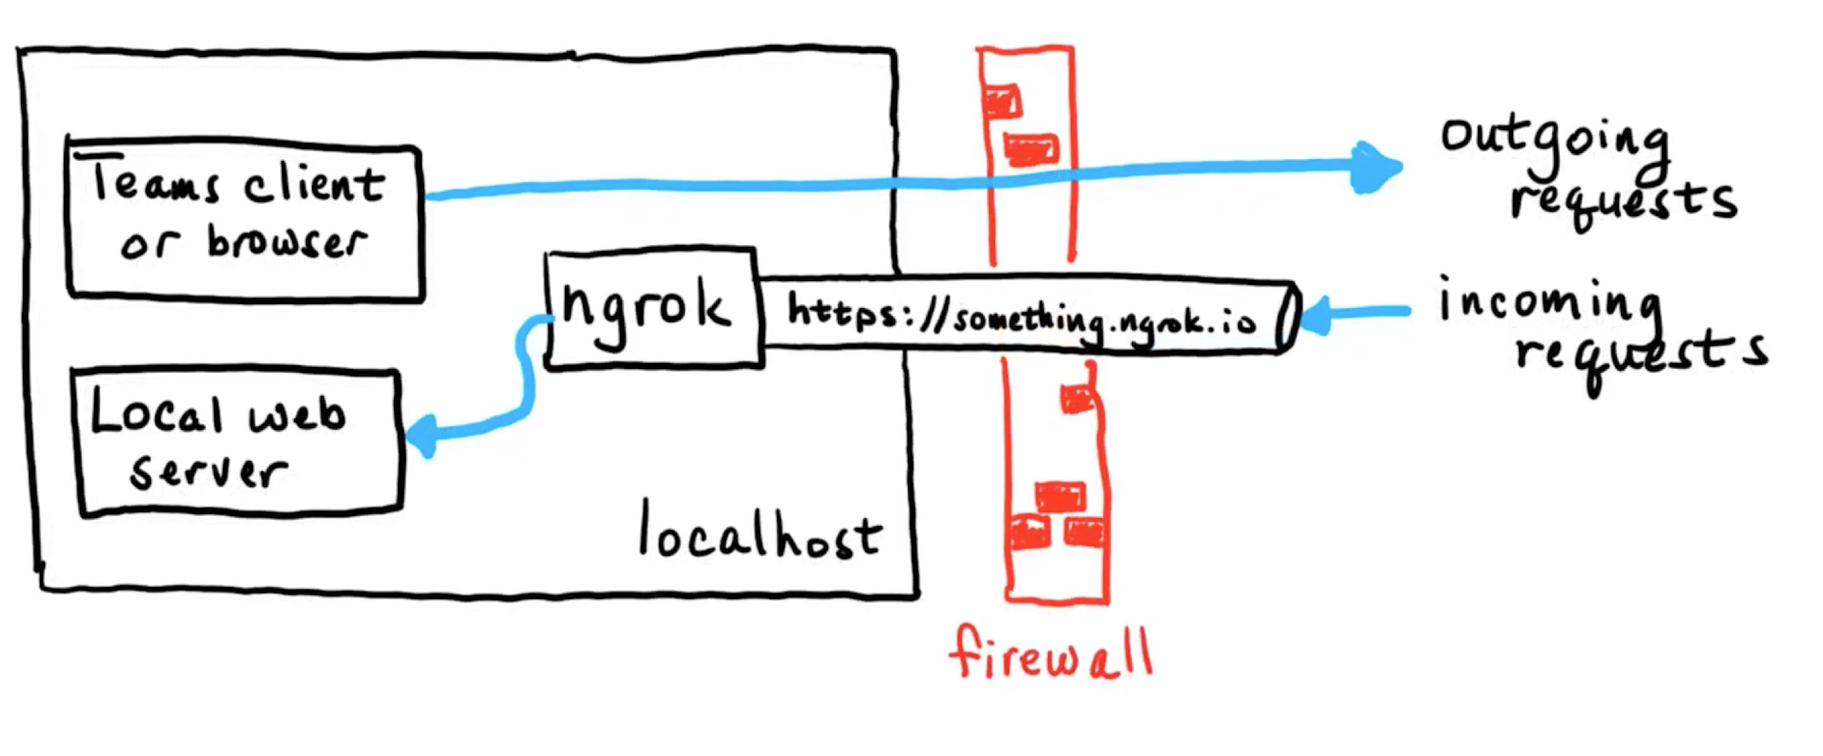 Teams client
or browser
outgoing
requests
ngrok
https://something.ngrok.io
incoming
requests
Local web
server
localhost
firewall